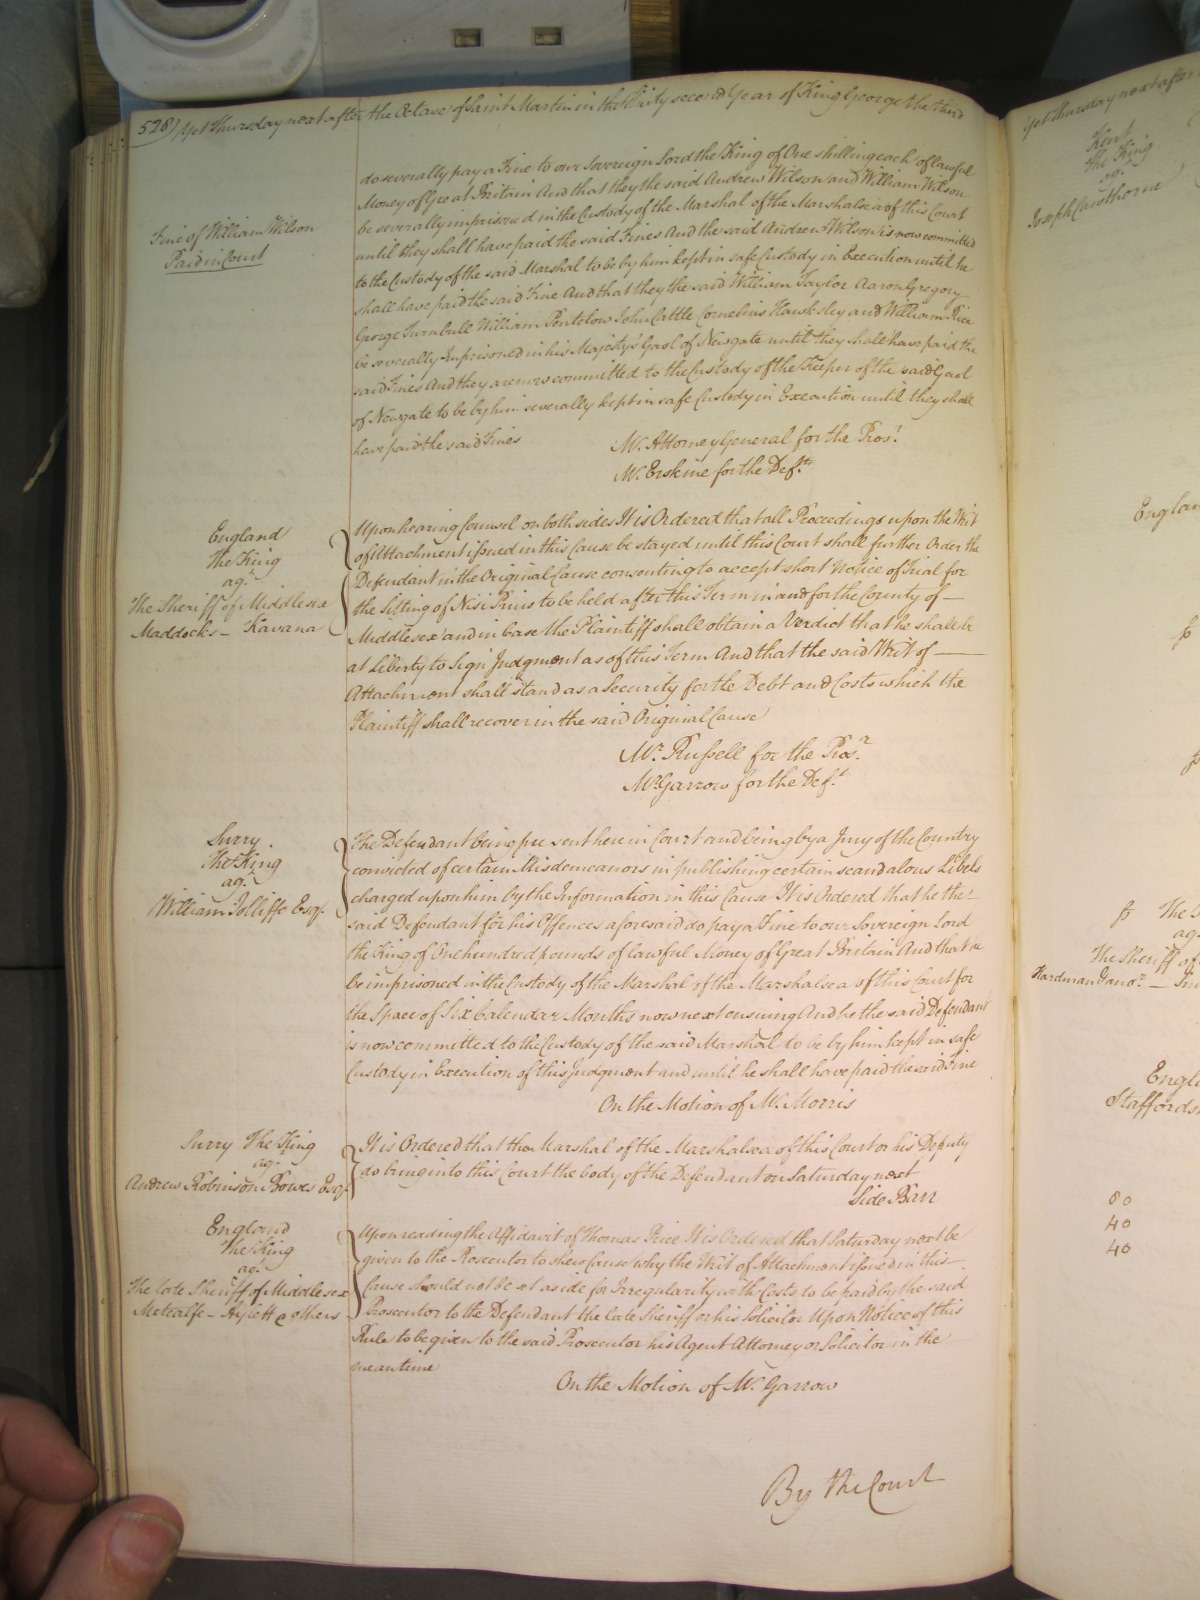 528) Yet Thursday next after the Octave of Saint Martin in the thirty second Year of King George the third
do severally pay a Fine to our Sovereign Lord the King of One shilling each of lawful
Money of Great Britain And that they the said Andrew Wilson and William Wilson
be severally imprisoned in the Custody of the Marshal of the Marshalsea of this Court
Fine of William Wilson
Paid in Court
until they shall have paid the said Fines And the said Andrew Wilson is now committed
to the Custody of the said Marshal to be by him kept in safe Custody in Execution until he
shall have paid the said Fine And that they the said William Taylor Aaron Gregory
George Turnbull William Pentelow John Cattle Cornelius Hawksley and William Rice
be severally Imprisoned in his Majesty's Gaol of Newgate until they shall have paid the
said Fines And they are now committed to the Custody of the Keeper of the said Gaol
of Newgate to be by him severally kept in safe Custody in Execution until they shall
have paid the said Fines
Mr. Attorney General for the Prosr.
Mr. Erskine for the Defts.
England
The King
agt.
The Sheriff of Middlesex
Maddocks – Kavana
Upon hearing Counsel on both sides It is Ordered that all Proceedings upon the Writ
of Attachment issued in this Cause be stayed until this Court shall further Order the
Defendant in the Original Cause consenting to accept short Notice of Trial for
the Sitting of Nisi Prius to be held after this Term in and for the County of —
Middlesex and in case the Plaintiff shall obtain a Verdict that he shall be
at Liberty to Sign Judgment as of this Term And that the said Writ of —
Attachment shall stand as a Security for the Debt and Costs which the
Plaintiff shall recover in the said Original Cause
Mr. Russell for the Prosr.
Mr. Garrow for the Deft.
Surry
The King
agt.
William Jolliffe Esqr.
The Defendant being present here in Court and being by a Jury of the Country
convicted of certain Misdemeanors in publishing certain scandalous Libels
charged upon him by the Information in this Cause It is Ordered that he the –
said Defendant for his Offences aforesaid do pay a Fine to our Sovereign Lord
the King of One hundred pounds of lawful Money of Great Britain And that he
be imprisoned in the Custody of the Marshal of the Marshalsea of this Court for
the Space of Six Calendar Months now next ensuing And he the said Defendant
is now committed to the Custody of the said Marshal to be by him kept in safe
Custody in Execution of this Judgment and until he shall have paid the said Fine
On the Motion of Mr. Morris
Surry The King
agt.
Andrew Robinson Bowes Esqr.
It is Ordered that the Marshal of the Marshalsea of this Court or his Deputy
do bring into this Court the body of the Defendant on Saturday next
Side Barr
England
The King
agt.
The late Sheriff of Middlesex
Metcalfe – Aylett & others
Upon reading the Affidavit of Thomas Price It is Ordered that Saturday next be
given to the Prosecutor to shew Cause why the Writ of Attachment issued in this —
Cause should not be set aside for Irregularity with Costs to be paid by the said
Prosecutor to the Defendant the late Sheriff or his Solicitor Upon Notice of this
Rule to be given to the said Prosecutor his Agent Attorney or Solicitor in the
mean time
On the Motion of Mr. Garrow
By the Court
Yet Thursday next after
Kent
The King
agt.
Joseph Cawthorne
Englan
The Sheriff of
Hardman
Engl
Staffords
80
40
40